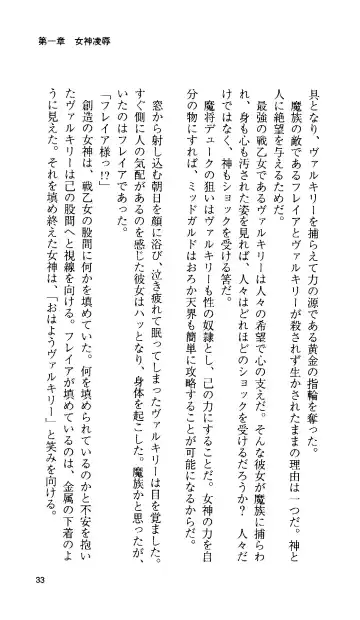 第一章　女神凌辱
具となり、ヴァルキリーを捕らえて力の源である黄金の指輪を奪った。
　魔族の敵であるフレイアとヴァルキリーが殺されず生かされたままの理由は一つだ。神と
人に絶望を与えるためだ。
　最強の戦乙女であるヴァルキリーは人々の希望で心の支えだ。そんな彼女が魔族に捕らわ
れ、身も心も汚された姿を見れば、人々はどれほどのショックを受けるだろうか？　人々だ
けではなく、神もショックを受ける筈だ。
　魔将デュークの狙いはヴァルキリーも性の奴隷とし、己の力にすることだ。女神の力を自
分の物にすれば、ミッドガルドはおろか天界も簡単に攻略することが可能になるからだ。
　窓から射し込む朝日を顔に浴び、泣き疲れて眠ってしまったヴァルキリーは目を覚ました。
すぐ側に人の気配があるのを感じた彼女はハッとなり、身体を起こした。魔族かと思ったが、
いたのはフレイアであった。
「フレイア様っ!?」
　創造の女神は、戦乙女の股間に何かを填めていた。何を填められているのかと不安を抱い
たヴァルキリーは己の股間へと視線を向ける。フレイアが填めているのは、金属の下着のよ
うに見えた。それを填め終えた女神は、「おはようヴァルキリー」と笑みを向ける。
33